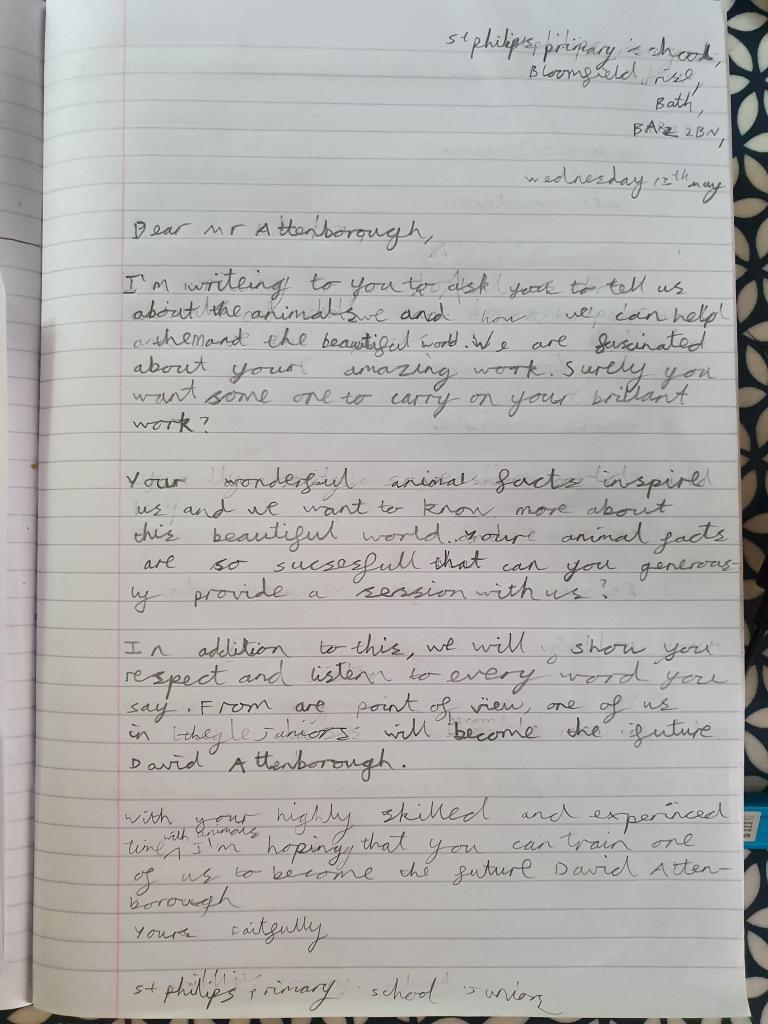 st philips primary school,
Bloomfield rise,
Bath,
BA2 2BN,
wednesday 13th may
Dear Mr Attenborough,
I'm writeing to you to ask you to tell us
about the animals we and how we can help
them and the beautiful world. We are fascinated
about your amazing work. Surely you
want some one to carry on your brillant
work?
Your wonderful animal facts inspired
us and we want to know more about
this beautiful world. youre animal facts
are so sucsesfull that can you generous-
ly provide a session with us?
In addition to this, we will show you
respect and listen to every word you
say. From are point of view, one of us
in the juniors will become the future
David Attenborough.
With your highly skilled and experinced
time with animals I'm hoping that you can train one
of us to become the future David Atten-
borough
Yours Faitfully
st philips primary school juniors